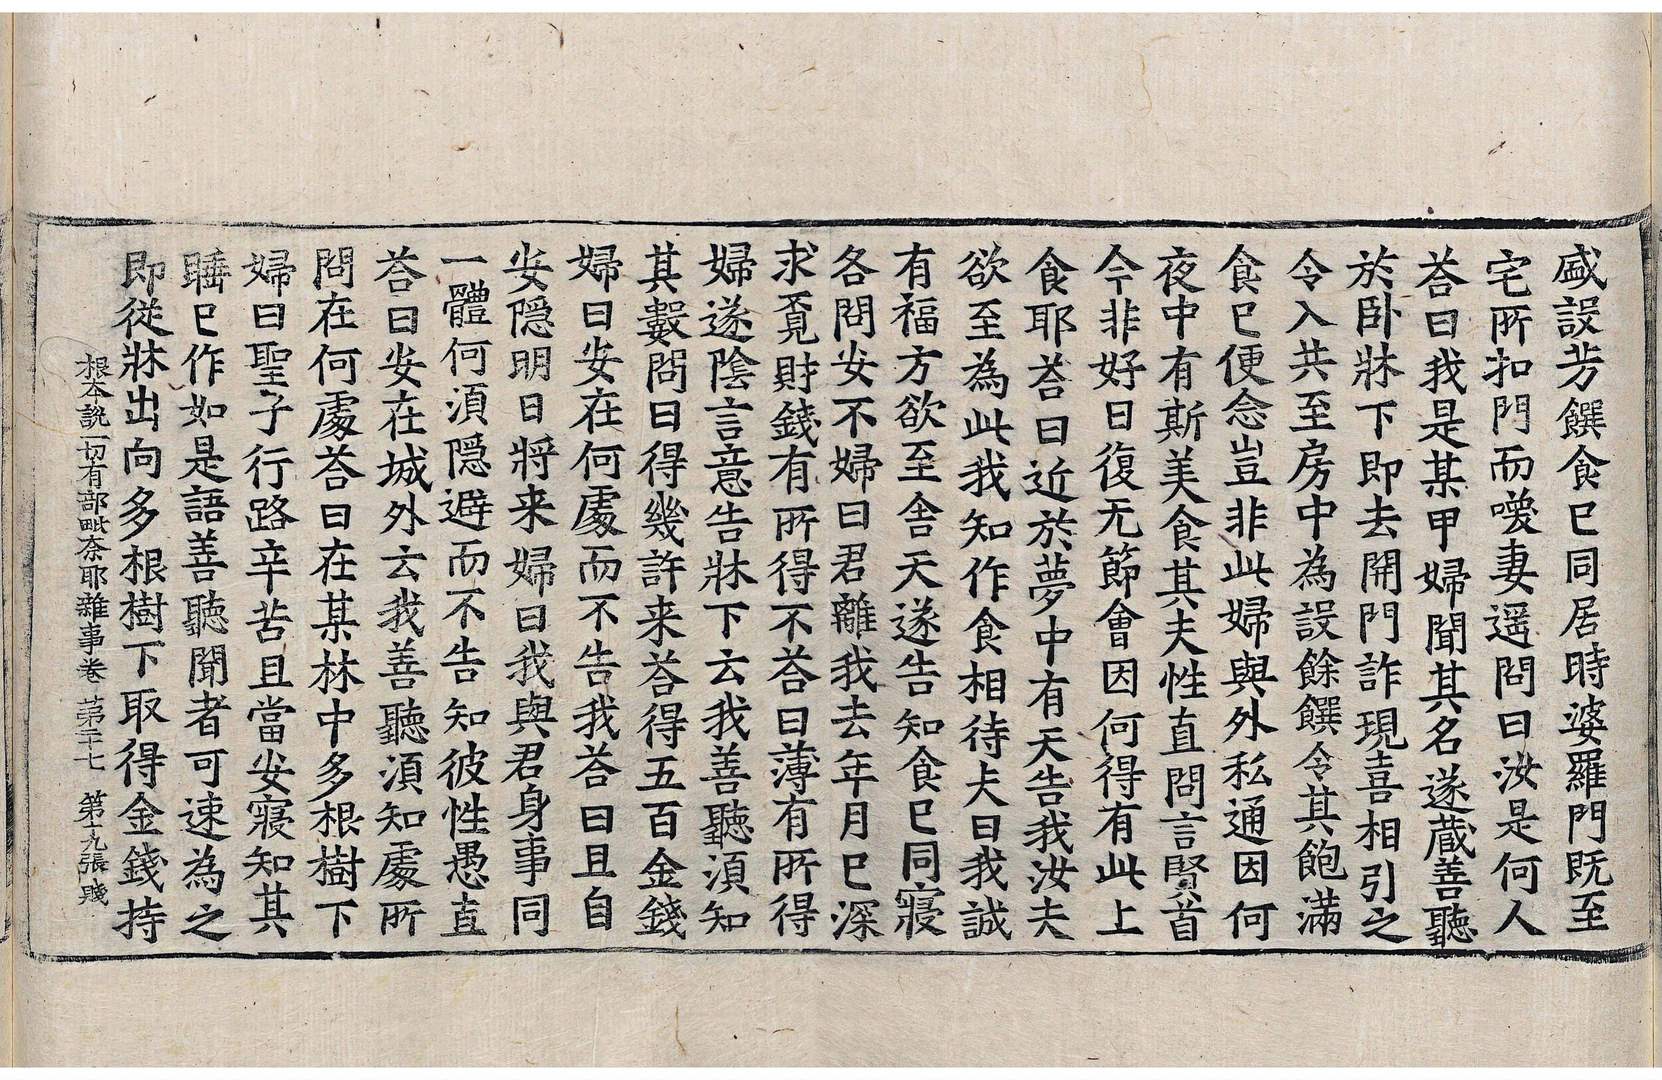 盛設芳饌食已同居時婆羅門既至
宅所扣門而喚妻遥問曰汝是何人
荅曰我是某甲婦聞其名遂蔵善聽
於卧牀下即去開門詐現喜相引之
令入共至房中為設餘饌令其飽滿
食已便念豈非此婦與外私通因何
夜中有斯美食其夫性直問言賢首
今非好日復无節會因何得有此上
食耶荅曰近於夢中有天告我汝夫
欲至為此我知作食相待夫曰我誠
有福方欲至舍天遂告知食已同寢
各問安不婦曰君離我去年月已深
求覔財錢有所得不荅曰薄有所得
婦遂陰言意告牀下云我善聽湏知
其數問曰得幾許来荅得五百金錢
婦曰安在何處而不告我荅曰且自
安隠明日將来婦曰我與君身事同
一體何湏隠避而不告知彼性愚直
荅曰安在城外云我善聽湏知處所
問在何處荅曰在某林中多根樹下
婦曰聖子行路辛苦且當安寢知其
睡已作如是語善聽聞者可速為之
即從牀出向多根樹下取得金錢持
根本說一切有部毗奈耶雜事卷　第二十七　第十九張　賤